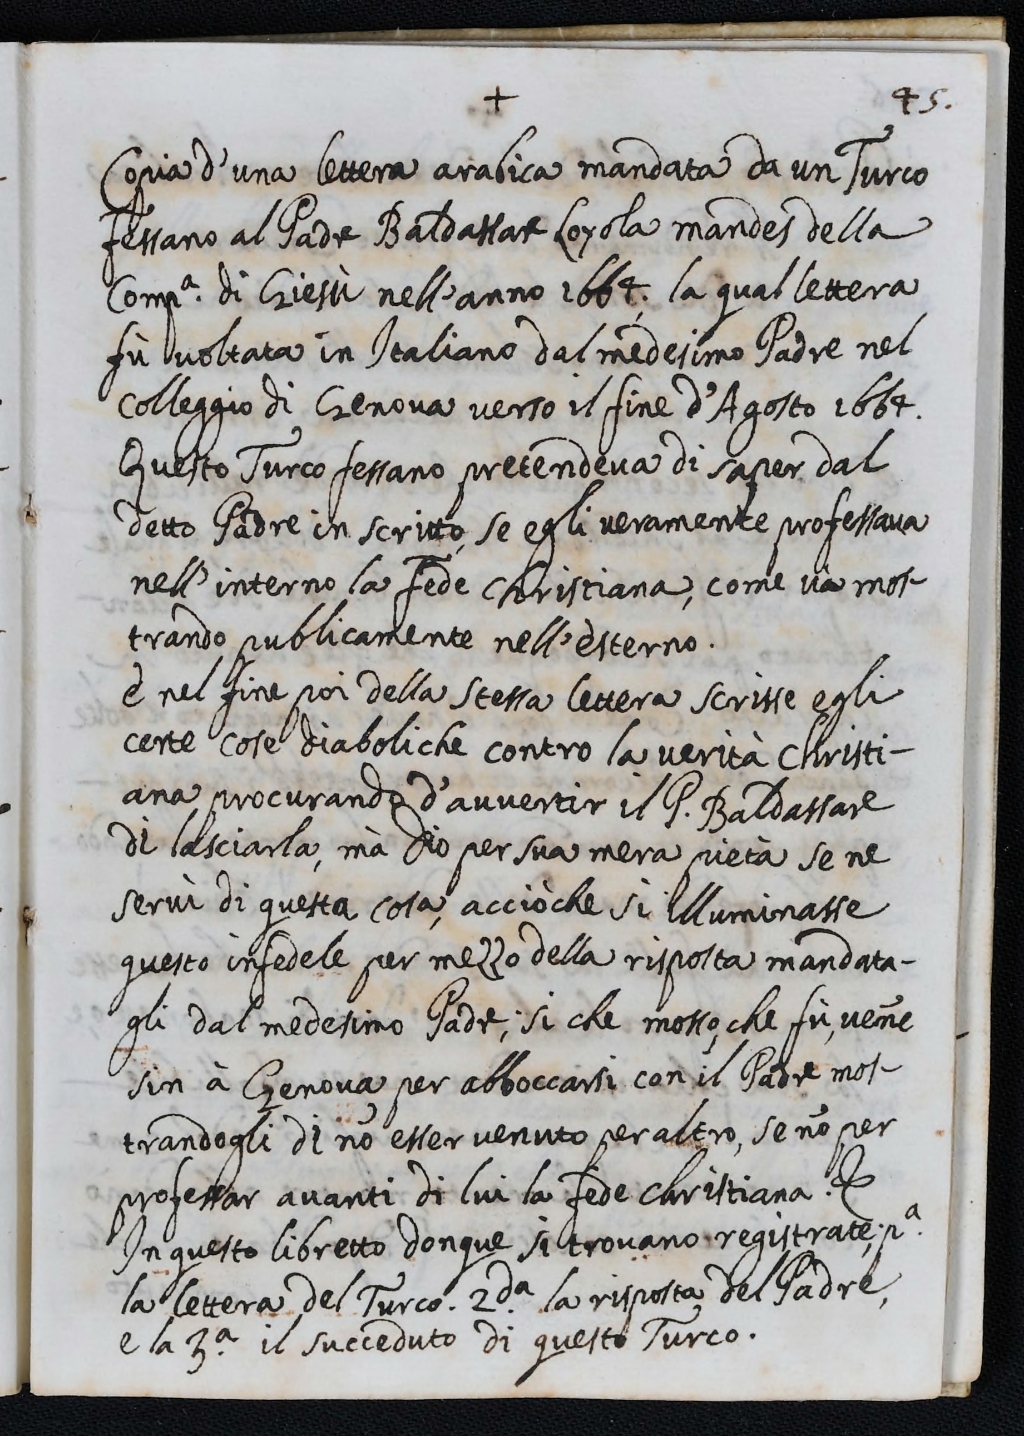 + 45.
Copia d'una lettera arabica mandata da un Turco
Fessano al Padre Baldassare Loyola mandes della
Comp.ª di Giesù nell'anno 1664. la qual lettera
fù voltata in Italiano dal medesimo Padre nel
Colleggio di Genova verso il fine d'Agosto 1664.
Questo Turco fessano pretendeva di saper dal
detto Padre in scritto, se egli veramente professava
nell'interno la Fede Christiana, come và mos-
trando publicamente nell'esterno.
è nel fine poi della stessa lettera scrisse egli
certe cose diaboliche contro la verità Christi-
ana procurando d'avvertir il P. Baldassare
di lasciarla, mà Dio per sua mera pietà se ne
servì di questa cosa, acciòche si illuminasse
questo infedele per mezzo della risposta mandata-
gli dal medesimo Padre; si che mosso, che fù, veñe
sin à Genova per abboccarsi con il Padre mos-
trandogli di nõ esser venuto per altro, se nõ per
professar avanti di lui la fede Christiana. &
In questo libretto donque si trovano registrate; p.ª
la lettera del Turco. 2.dª la risposta del Padre,
e la 3.ª il succeduto di questo Turco.